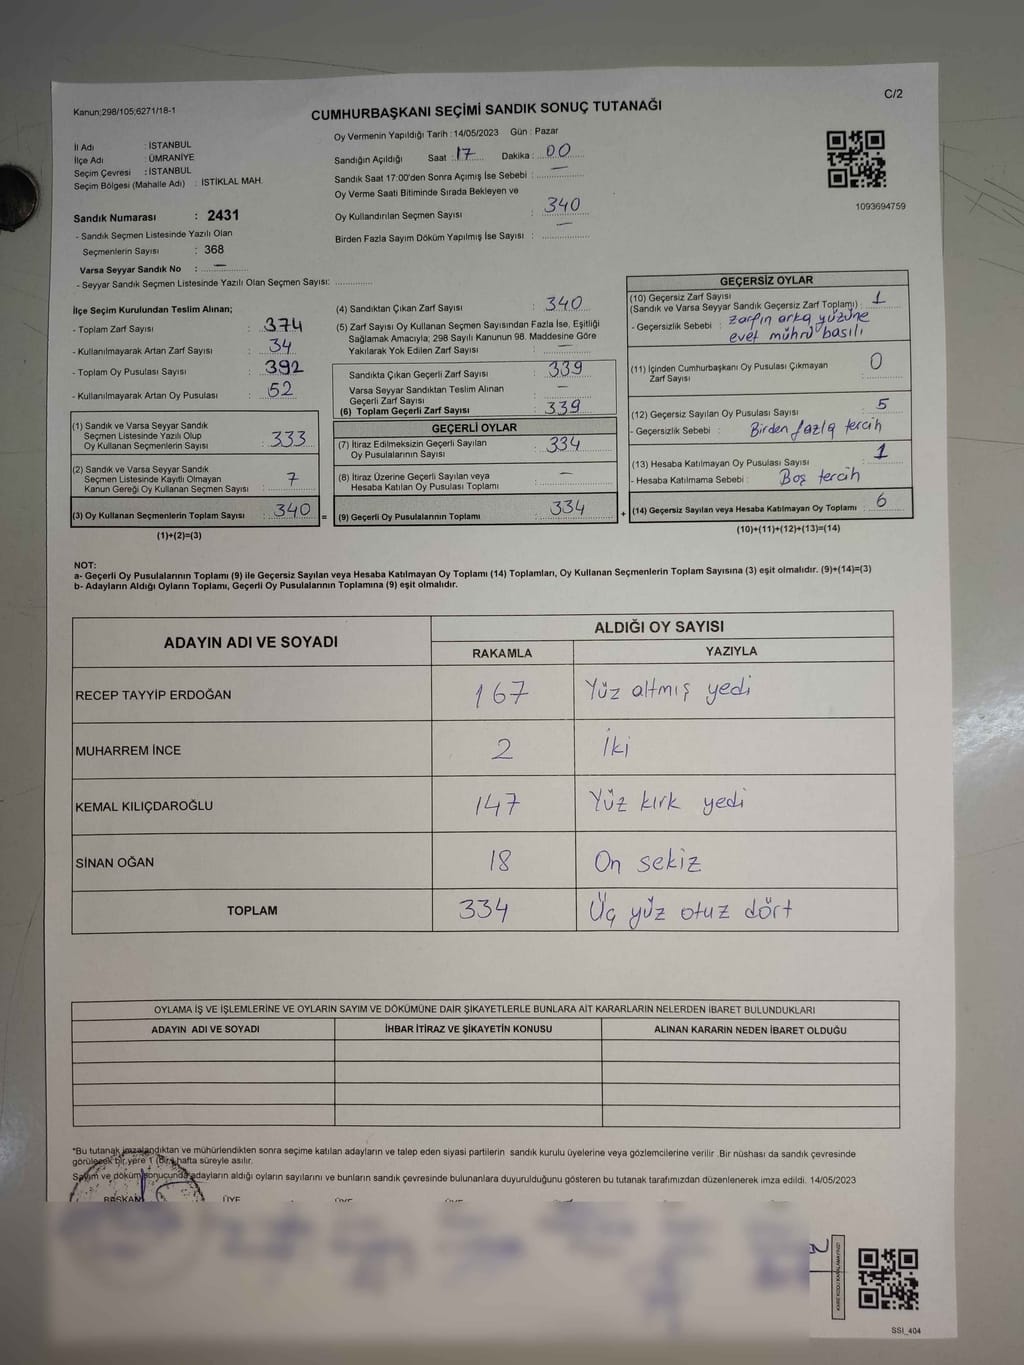 C/2
Kanun;298/105;6271/18-1
CUMHURBAŞKANI SEÇİMİ SANDIK SONUÇ TUTANAĞI
İl Adı : İSTANBUL
İlçe Adı : ÜMRANİYE
Seçim Çevresi : İSTANBUL
Seçim Bölgesi (Mahalle Adı) : İSTİKLAL MAH.
Sandık Numarası : 2431
- Sandık Seçmen Listesinde Yazılı Olan
Seçmenlerin Sayısı : 368
Varsa Seyyar Sandık No : —
- Seyyar Sandık Seçmen Listesinde Yazılı Olan Seçmen Sayısı: ............
Oy Vermenin Yapıldığı Tarih : 14/05/2023 Gün : Pazar
Sandığın Açıldığı Saat : 17 Dakika : 00
Sandık Saat 17:00'den Sonra Açımış İse Sebebi : —
Oy Verme Saati Bitiminde Sırada Bekleyen ve
Oy Kullandırılan Seçmen Sayısı : 340
Birden Fazla Sayım Döküm Yapılmış İse Sayısı : —
1093694759
İlçe Seçim Kurulundan Teslim Alınan;
- Toplam Zarf Sayısı : 374
- Kullanılmayarak Artan Zarf Sayısı : 34
- Toplam Oy Pusulası Sayısı : 392
- Kullanılmayarak Artan Oy Pusulası : 52
(1) Sandık ve Varsa Seyyar Sandık
Seçmen Listesinde Yazılı Olup
Oy Kullanan Seçmenlerin Sayısı : 333
(2) Sandık ve Varsa Seyyar Sandık
Seçmen Listesinde Kayıtlı Olmayan
Kanun Gereği Oy Kullanan Seçmen Sayısı : 7
(3) Oy Kullanan Seçmenlerin Toplam Sayısı : 340 =
(1)+(2)=(3)
(4) Sandıktan Çıkan Zarf Sayısı : 340
(5) Zarf Sayısı Oy Kullanan Seçmen Sayısından Fazla İse, Eşitliği
Sağlamak Amacıyla; 298 Sayılı Kanunun 98. Maddesine Göre
Yakılarak Yok Edilen Zarf Sayısı : —
Sandıkta Çıkan Geçerli Zarf Sayısı : 339
Varsa Seyyar Sandıktan Teslim Alınan
Geçerli Zarf Sayısı : —
(6) Toplam Geçerli Zarf Sayısı : 339
GEÇERLİ OYLAR
(7) İtiraz Edilmeksizin Geçerli Sayılan
Oy Pusulalarının Sayısı : 334
(8) İtiraz Üzerine Geçerli Sayılan veya
Hesaba Katılan Oy Pusulası Toplamı : —
(9) Geçerli Oy Pusulalarının Toplamı : 334 +
GEÇERSİZ OYLAR
(10) Geçersiz Zarf Sayısı
(Sandık ve Varsa Seyyar Sandık Geçersiz Zarf Toplamı) : 1
- Geçersizlik Sebebi : zarfın arka yüzüne
evet mührü basılı
(11) İçinden Cumhurbaşkanı Oy Pusulası Çıkmayan
Zarf Sayısı : 0
(12) Geçersiz Sayılan Oy Pusulası Sayısı : 5
- Geçersizlik Sebebi : Birden fazla tercih
(13) Hesaba Katılmayan Oy Pusulası Sayısı : 1
- Hesaba Katılmama Sebebi : Boş tercih
(14) Geçersiz Sayılan veya Hesaba Katılmayan Oy Toplamı : 6
(10)+(11)+(12)+(13)=(14)
NOT:
a- Geçerli Oy Pusulalarının Toplamı (9) ile Geçersiz Sayılan veya Hesaba Katılmayan Oy Toplamı (14) Toplamları, Oy Kullanan Seçmenlerin Toplam Sayısına (3) eşit olmalıdır. (9)+(14)=(3)
b- Adayların Aldığı Oyların Toplamı, Geçerli Oy Pusulalarının Toplamına (9) eşit olmalıdır.
ADAYIN ADI VE SOYADI ALDIĞI OY SAYISI
RAKAMLA YAZIYLA
RECEP TAYYİP ERDOĞAN 167 Yüz altmış yedi
MUHARREM İNCE 2 İki
KEMAL KILIÇDAROĞLU 147 Yüz kırk yedi
SİNAN OĞAN 18 On sekiz
TOPLAM 334 Üç yüz otuz dört
OYLAMA İŞ VE İŞLEMLERİNE VE OYLARIN SAYIM VE DÖKÜMÜNE DAİR ŞİKAYETLERLE BUNLARA AİT KARARLARIN NELERDEN İBARET BULUNDUKLARI
ADAYIN ADI VE SOYADI İHBAR İTİRAZ VE ŞİKAYETİN KONUSU ALINAN KARARIN NEDEN İBARET OLDUĞU
*Bu tutanak imzalandıktan ve mühürlendikten sonra seçime katılan adayların ve talep eden siyasi partilerin sandık kurulu üyelerine veya gözlemcilerine verilir .Bir nüshası da sandık çevresinde
görülecek bir yere 1 (Bir) hafta süreyle asılır.
Sayım ve döküm sonucunda adayların aldığı oyların sayılarını ve bunların sandık çevresinde bulunanlara duyurulduğunu gösteren bu tutanak tarafımızdan düzenlenerek imza edildi. 14/05/2023
BAŞKAN ÜYE
SSI_404